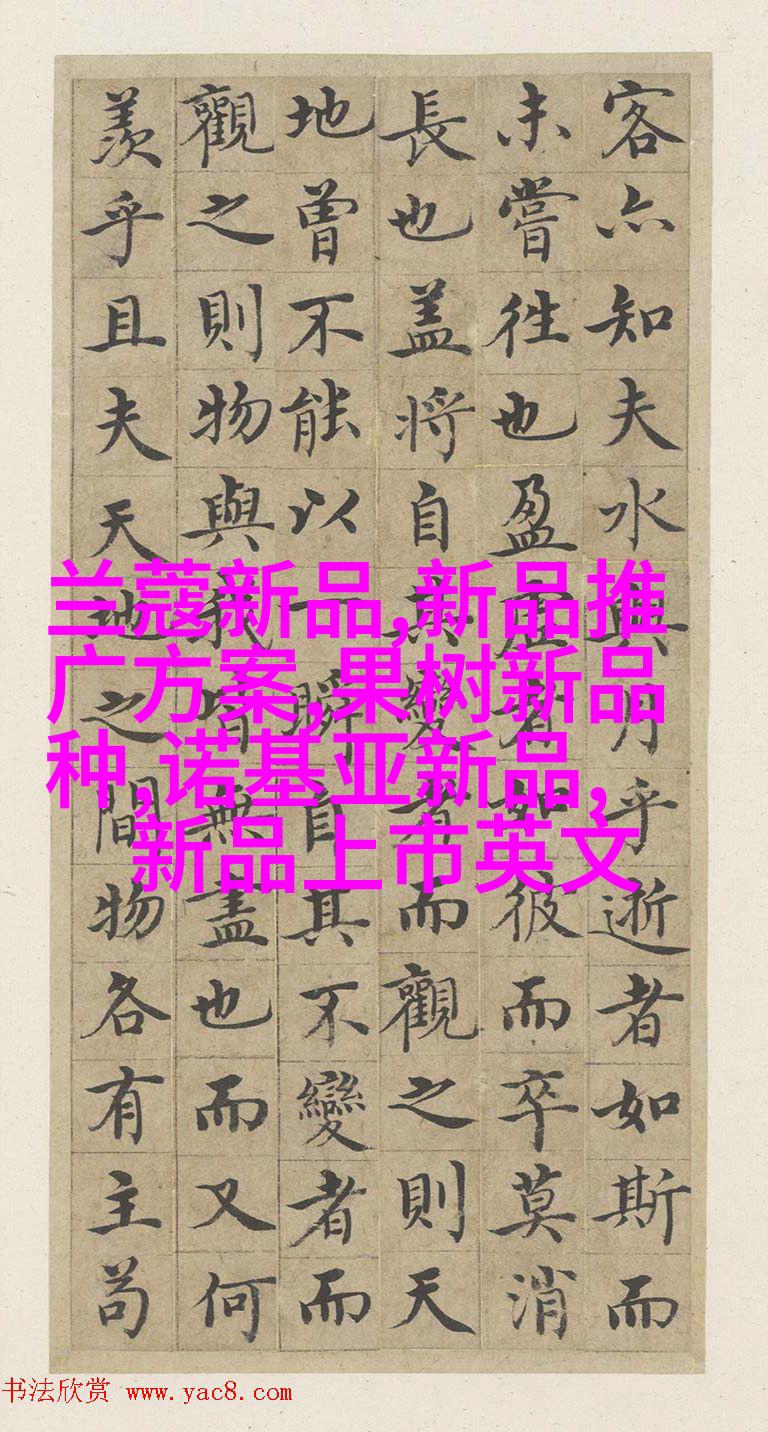 客亦知夫水與月乎逝者如斯而
未嘗往也盈虛者如彼而卒莫消
長也盖将自其變者而觀之則天
地曾不能以一瞬自其不變者而
觀之則物與我皆無盡也而又何
羨乎且夫天地之間物各有主苟
兰蔻新品,新品推
广方案,果树新品
种,诺基亚新品,
新品上市英文
书法欣赏 www.yac8.com